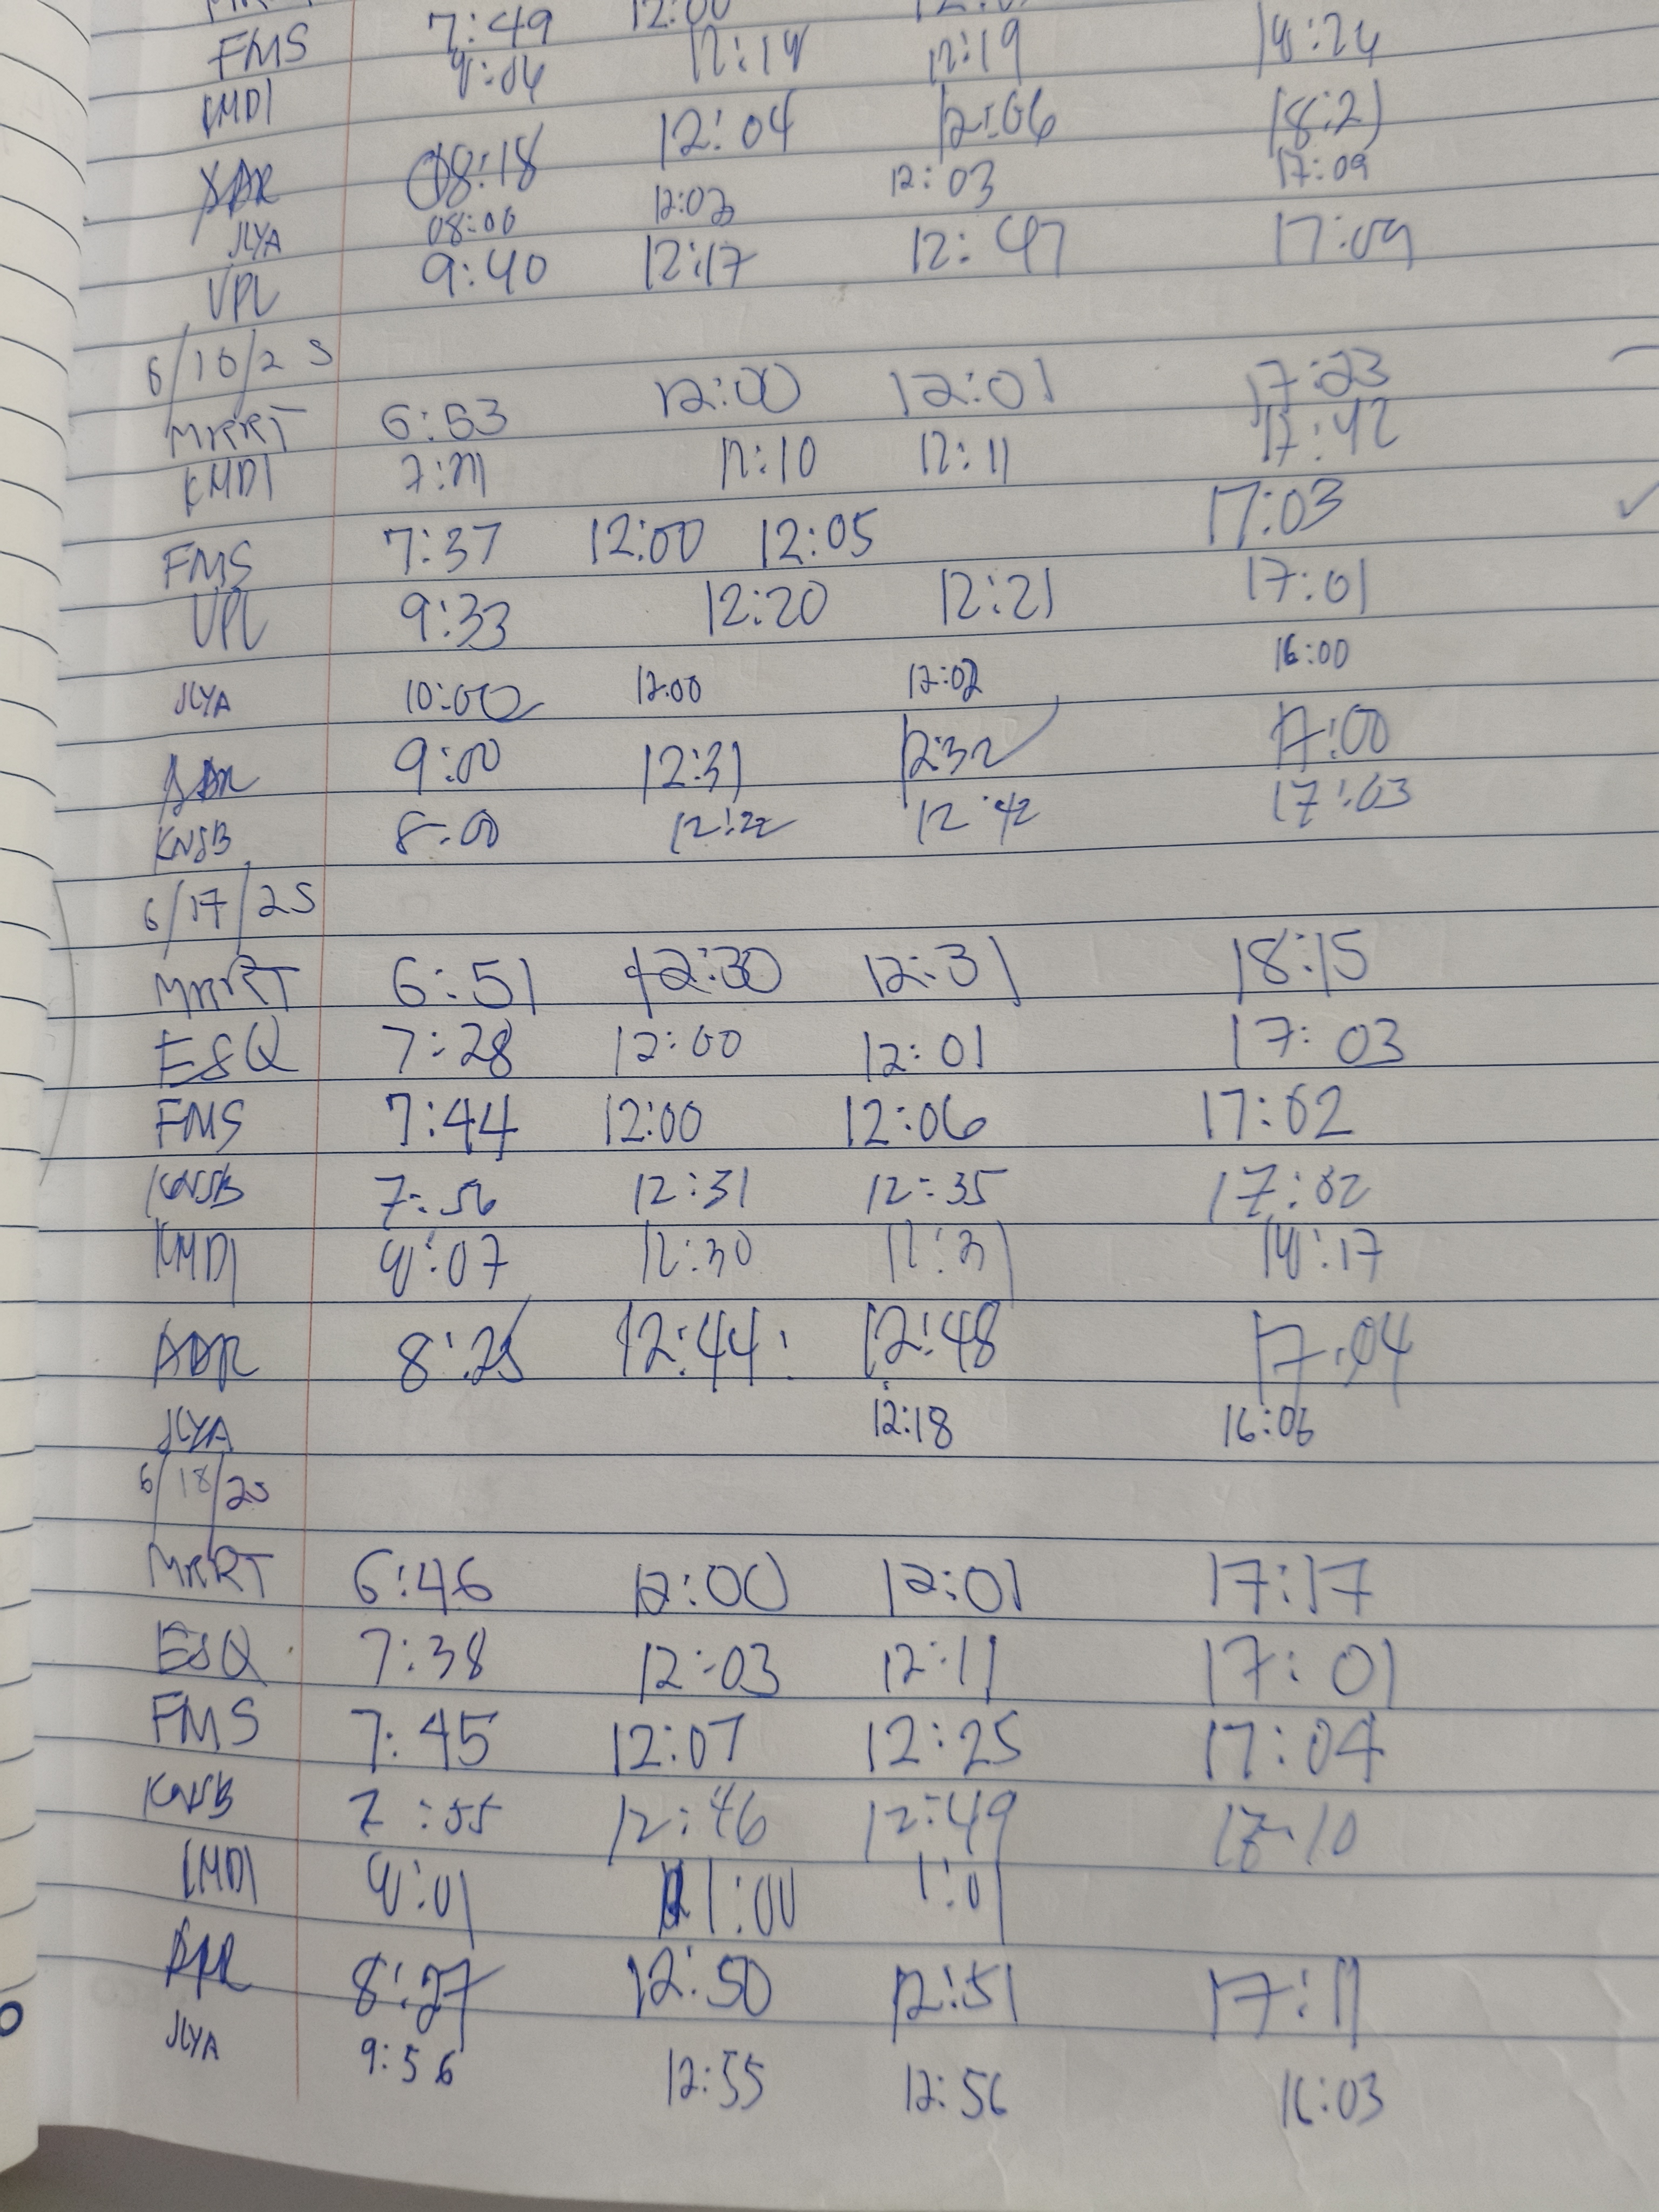 FMS 7:49 12:00
KMDI 8:04 12:18 12:19 18:24
08:18 12:04 12:06 18:21
JLYA 08:00 12:02 12:03 17:09
VPL 9:40 12:17 12:47 17:09
6/16/25
MRRT 6:53 12:00 12:01 17:23
KMDI 12:10 12:11 17:42
FMS 7:37 12:00 12:05 17:03
VPL 9:33 12:20 12:21 17:01
JLYA 10:00 12:00 12:02 16:00
9:00 12:31 12:32 17:00
KNSB 8:00 12:22 12:42 17:03
6/17/25
MRRT 6:51 12:30 12:31 18:15
ESQ 7:28 12:00 12:01 17:03
FMS 7:44 12:00 12:06 17:02
KNSB 7:56 12:31 12:35 17:02
KMDI 8:07 12:30 12:31 18:17
ADR 8:25 12:44 12:48 17:04
JLYA 12:18 16:06
6/18/25
MRRT 6:46 12:00 12:01 17:17
ESQ 7:38 12:03 12:11 17:01
FMS 7:45 12:07 12:25 17:04
KNSB 7:55 12:46 12:49 17:10
KMDI 8:01 1:00 1:01
8:27 12:50 12:51 17:11
JLYA 9:56 12:55 12:56 16:03